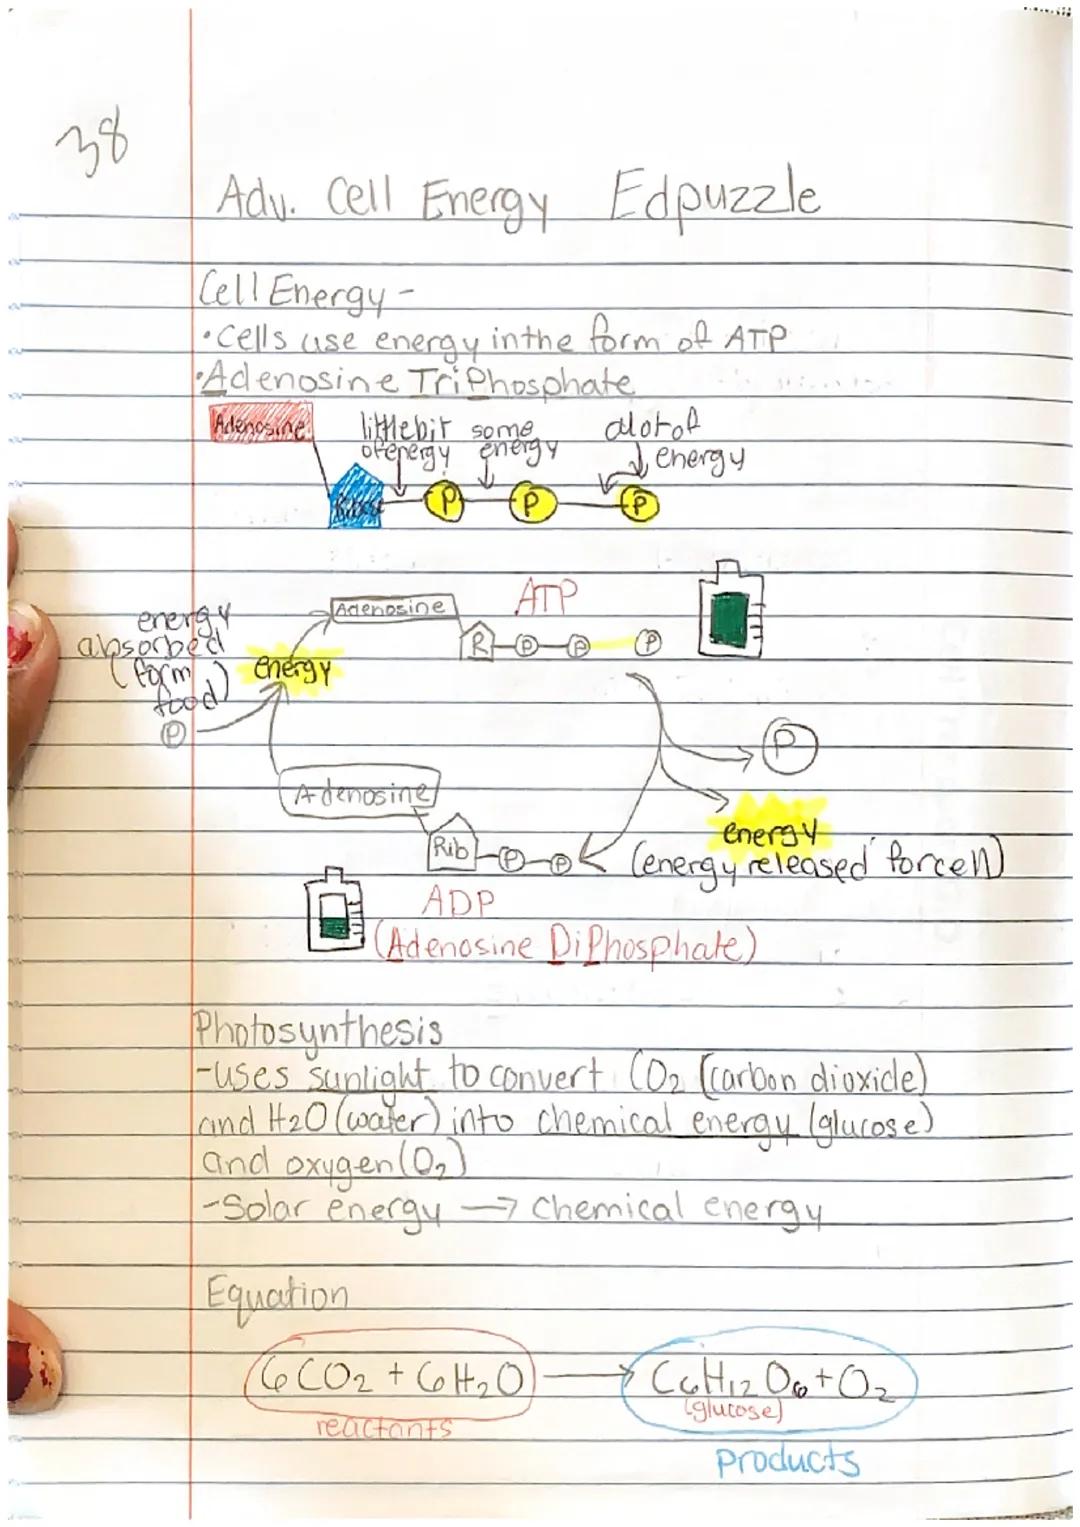 38
Adv. Cell Energy Edpuzzle
Cell Energy -
• Cells use energy in the form of ATP
• Adenosine TriPhosphate
Adenosine
little bit of energy
some energy
alot of energy
Ribose P P P
ATP
Adenosine
R P P P
energy absorbed (form food)
energy
P
P
Adenosine
energy
(energy released for cell)
Rib P P
ADP
(Adenosine DiPhosphate)
Photosynthesis
-uses sunlight to convert CO2 (carbon dioxide)
and H2O (water) into chemical energy (glucose)
and oxygen (O2)
-Solar energy → chemical energy
Equation
6CO2 + 6H2O → C6H12O6 + O2
(glucose)
reactants
products